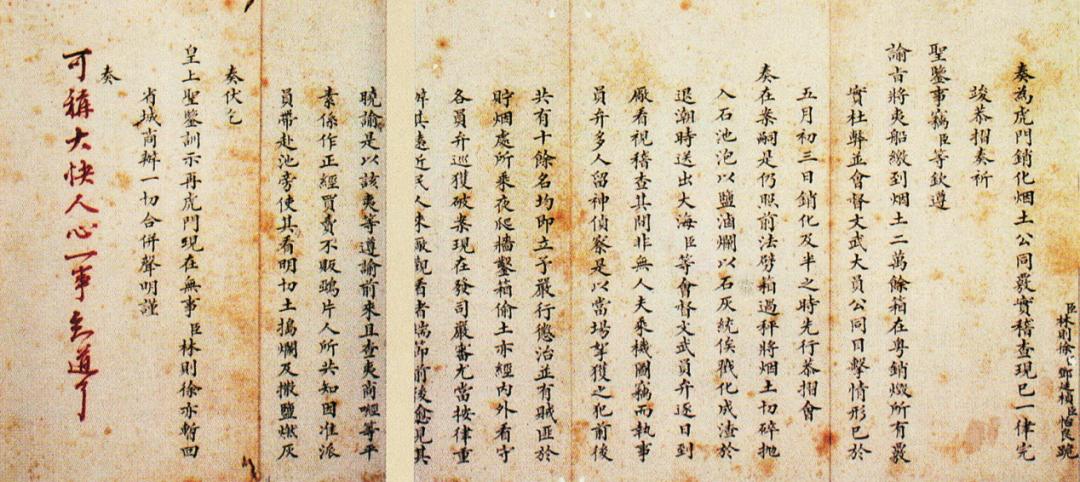 臣林則徐臣鄧廷楨臣怡良跪
奏為虎門銷化烟土公同覈實稽查現已一律完
竣恭摺奏祈
聖鑒事竊臣等欽遵
諭旨將夷船繳到烟土二萬餘箱在粵銷燬所有覈
實杜弊並會督文武大員公同目擊情形已於
五月初三日銷化及半之時先行恭摺會
奏在案嗣是仍照前法劈箱過秤將烟土切碎拋
入石池泡以鹽滷爛以石灰統俟戳化成渣於
退潮時送出大海臣等會督文武員弁逐日到
廠看視稽查其間非無人夫乘機圖竊而執事
員弁多人留神偵察是以當場拏獲之犯前後
共有十餘名均即立予嚴行懲治並有賊匪於
貯烟處所乘夜爬牆鑿箱偷土亦經內外看守
各員弁巡獲破案現在發司嚴審尤當按律重
辦其遠近民人來廠觀看者端節前後愈見其
曉諭是以該夷等遵諭前來且查夷商喱等平
素係作正經買賣不販鴉片人所共知因准派
員帶赴池旁使其看明切土搗爛及撒鹽燃灰
奏伏乞
皇上聖鑒訓示再虎門現在無事臣林則徐亦暫回
省城商辦一切合併聲明謹
奏
可稱大快人心一事知道了